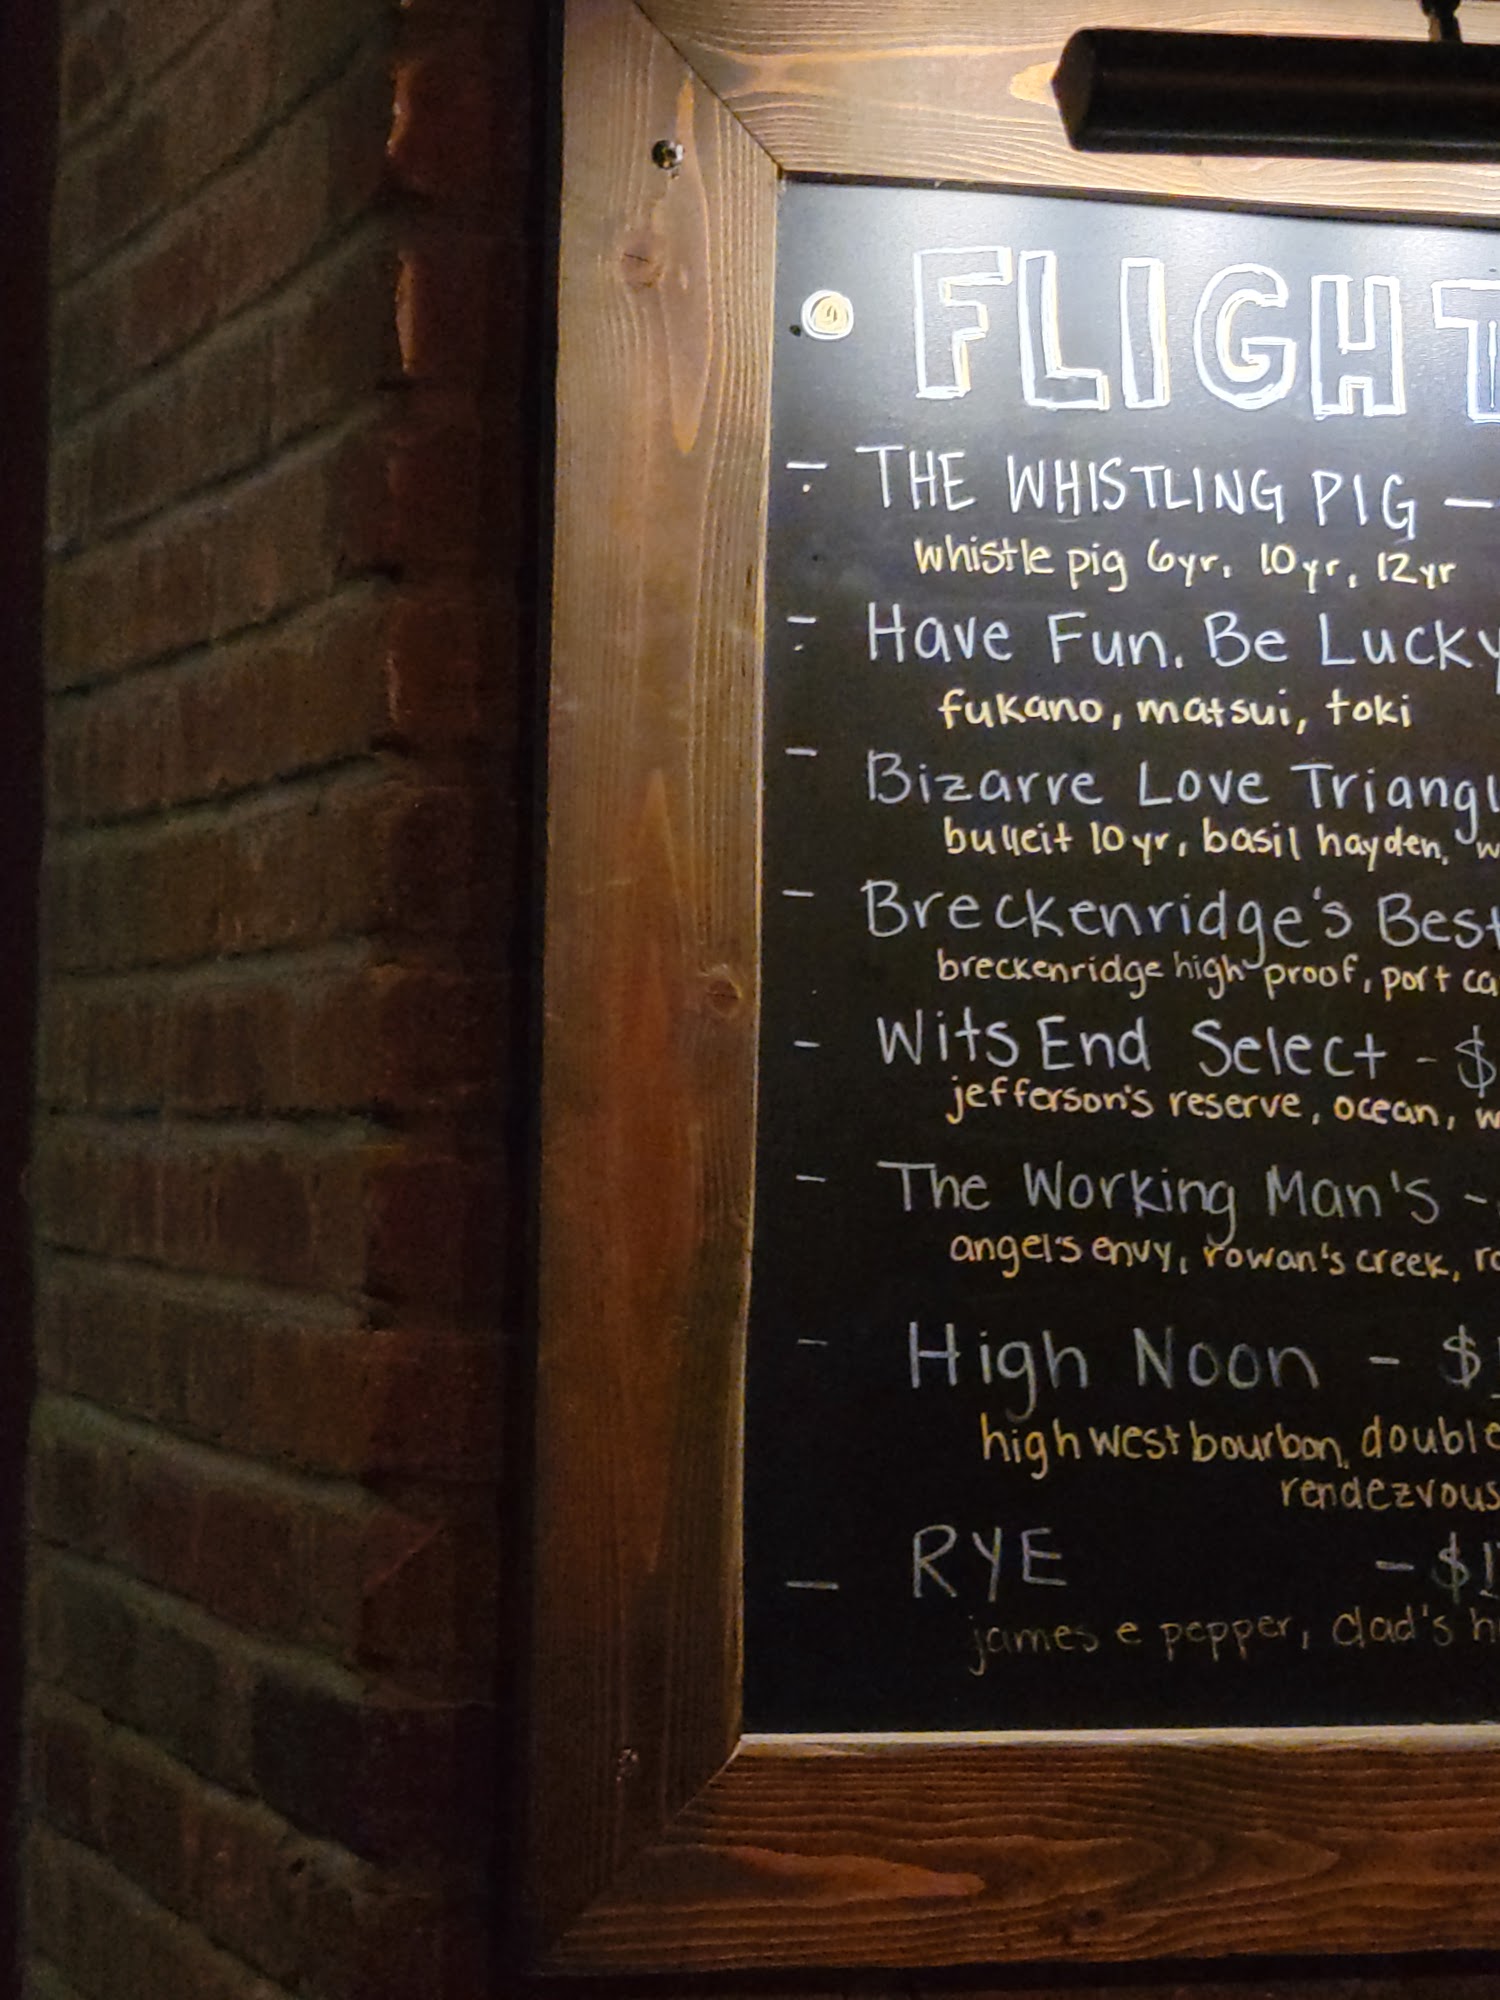 FLIGHT
- THE WHISTLING PIG -
whistle pig 6yr, 10yr, 12yr
- Have Fun. Be Lucky
fukano, matsui, toki
- Bizarre Love Triangl
bulleit 10yr, basil hayden, w
- Breckenridge's Best
breckenridge high proof, port ca
- Wits End Select - $
jefferson's reserve, ocean, w
- The Working Man's -
angel's envy, rowan's creek, ro
- High Noon - $1
high west bourbon, double
rendezvous
- RYE - $1
james e pepper, dad's h